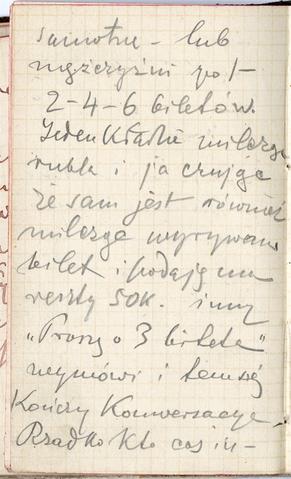 samotne – lub
mężczyźni po 1–
2–4–6 biletów.
Jeden kładzie milcząc
rubla i ja czując
że sam jest również
milcząc wyrywam
bilet i podaję mu
reszty 50k. inny
„Proszę o 3 bileta"
wymówi i tem się
kończy konwersacye.
Rzadko kto coś in–